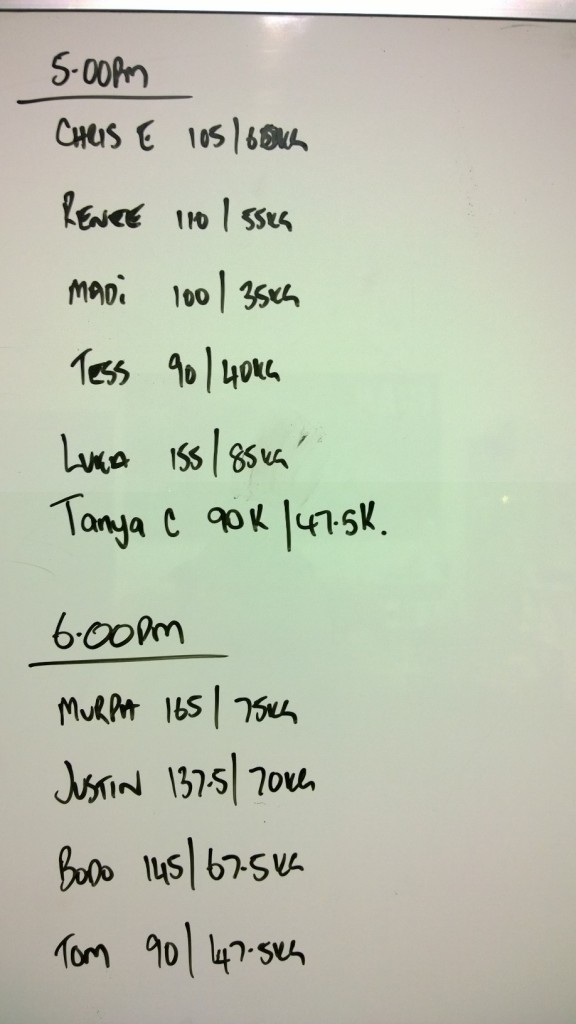 5.00PM
CHRIS E 105/
RENEE 110/55KG
MADi 100/35KG
TESS 90/40KG
LUKA 155/85KG
Tanya C 90K/47.5K.
6.00PM
MURPH 165/75KG
JUSTIN 137.5/70KG
BODO 145/67.5KG
TOM 90/47.5KG